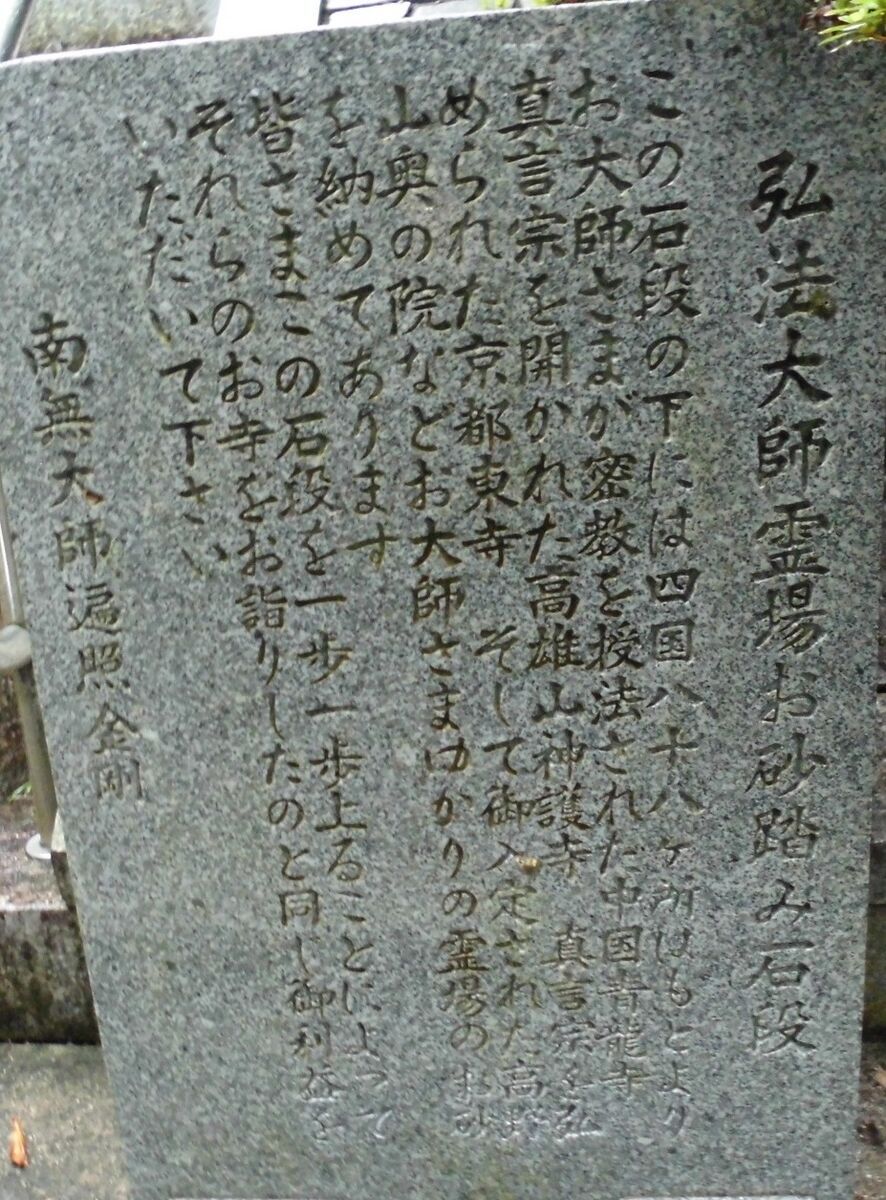 弘法大師霊場お砂踏み石段
この石段の下には四国八十八ヶ所はもとより
お大師さまが密教を授法された中国青龍寺
真言宗を開かれた高雄山神護寺 真言宗を弘
められた京都東寺 そして御入定された高野
山奥の院などお大師さまゆかりの霊場のお砂
を納めてあります
皆さまこの石段を一歩一歩上ることによって
それらのお寺をお詣りしたのと同じ御利益を
いただいて下さい
南無大師遍照金剛